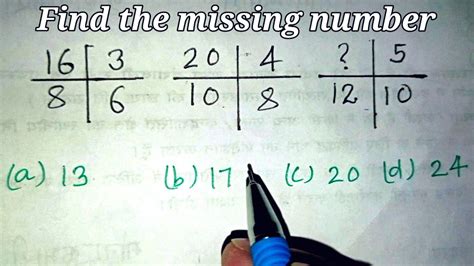 Find the missing number
16 3 20 4 ? 5
8 6 10 8 12 10
(a) 13 (b) 17 (c) 20 (d) 24